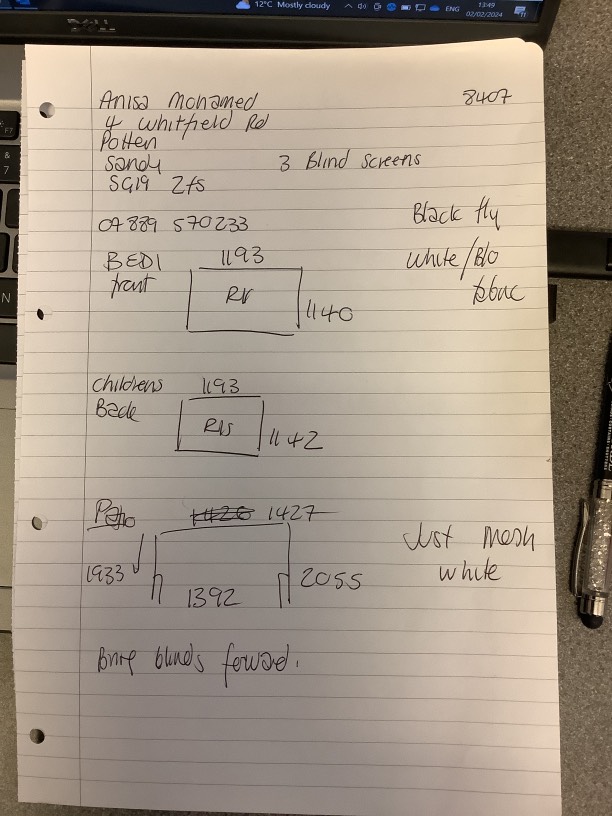 12°C Mostly cloudy ENG 13:49
02/02/2024
DELL
Anisa Mohamed 8407
4 Whitfield Rd
Potten
Sandy 3 Blind screens
SG19 2fs
07889 570233 Black fly
BED1 1193 white/Blo
front 1140
Childrens 1193
Back 1142
Patio 1426 1427
Just mesh
1933 1392 2055 white
Bring blinds forwad.